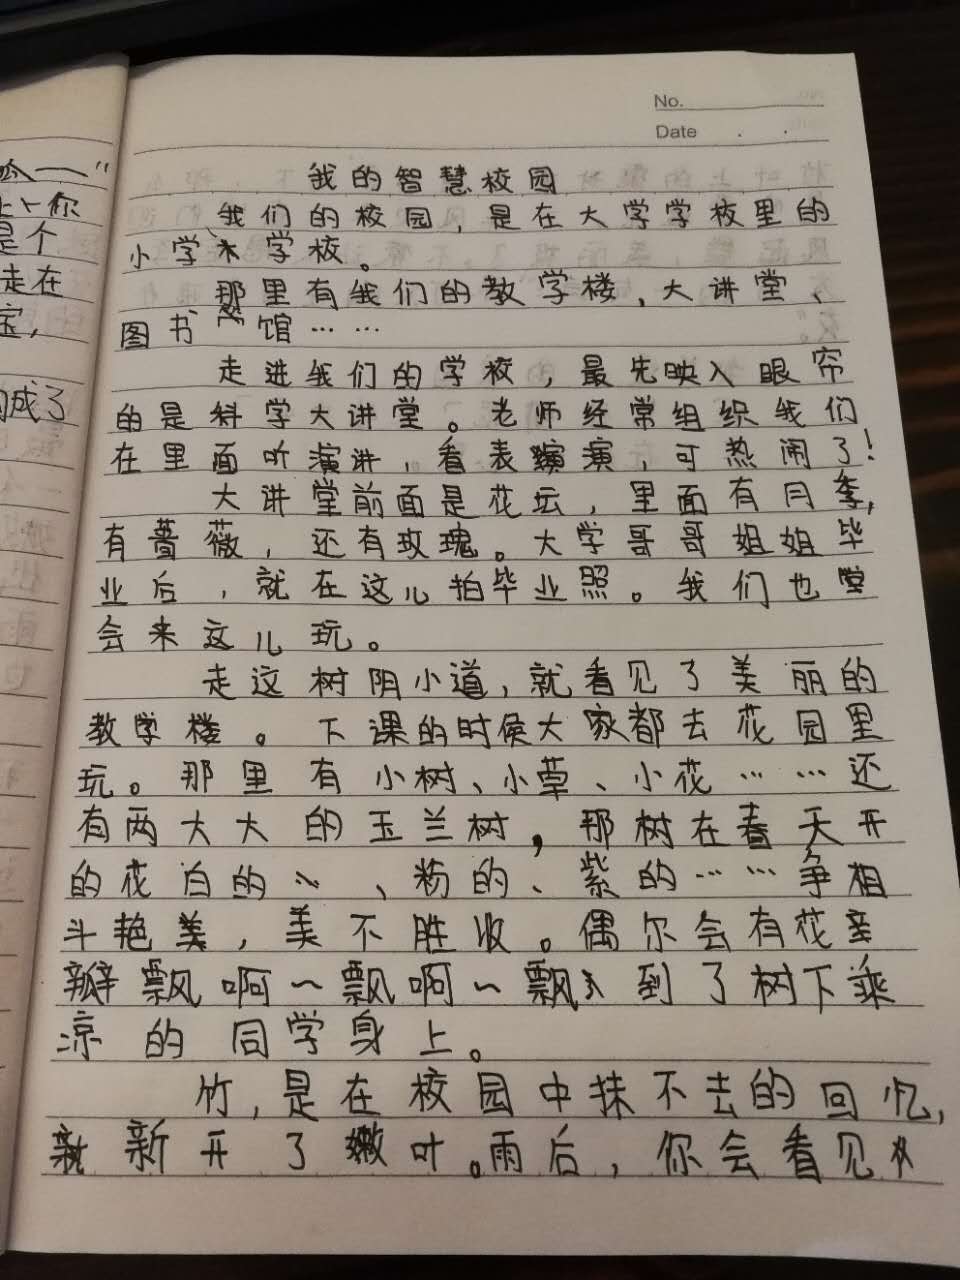 No.
Date
我的智慧校园
我们的校园，是在大学学校里的
小学学校。
那里有我们的教学楼、大讲堂、
图书馆……
走进我们的学校，最先映入眼帘
的是科学大讲堂。老师经常组织我们
在里面听演讲，看表演，可热闹了！
大讲堂前面是花坛，里面有月季，
有蔷薇，还有玫瑰。大学哥哥姐姐毕
业后，就在这儿拍毕业照。我们也
会来这儿玩。
走这树阴小道，就看见了美丽的
教学楼。下课的时侯大家都去花园里
玩。那里有小树、小草、小花……还
有两大大的玉兰树，那树在春天开
的花白的、粉的、紫的……争相
斗艳，美不胜收。偶尔会有花
瓣飘啊~飘啊~飘到了树下乘
凉的同学身上。
竹，是在校园中抹不去的回忆，
新开了嫩叶。雨后，你会看见
"
你
是个
走在
宝，
成了